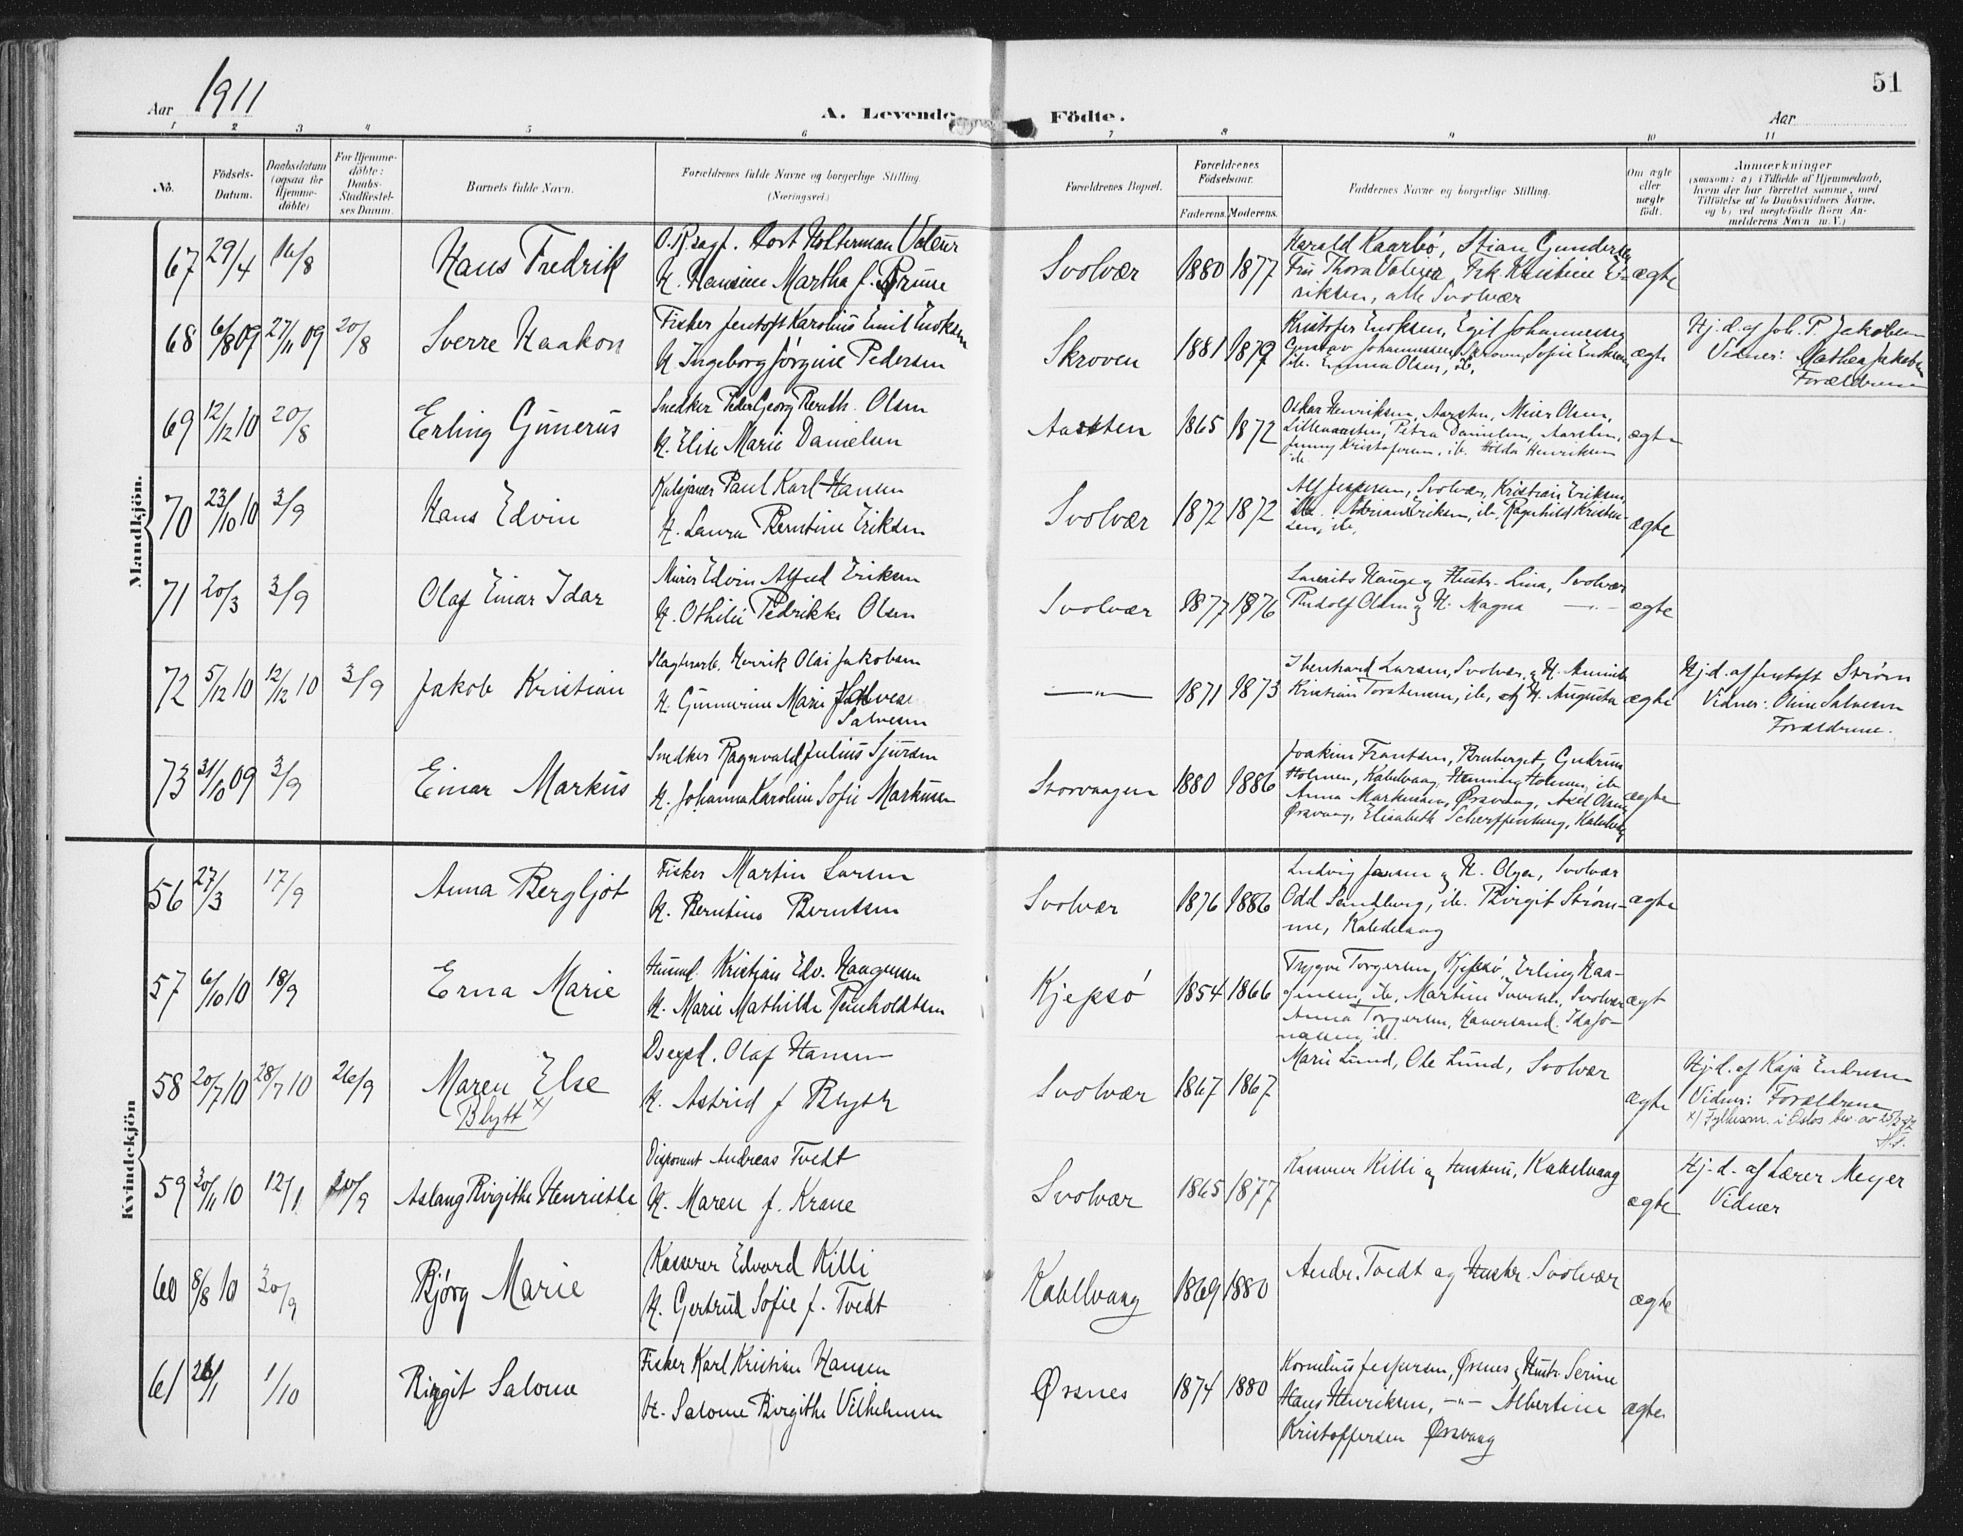 Aar 1911
A. Levende Födte.
Aar
51
1 2 3 4 5 6 7 8 9 10 11
No.
Födsels-Datum.
Daabsdatum (ogsaa for Hjemme-döbte)
For Hjemme-döbte: Daabs-Stadfæstel-ses Datum.
Barnets fulde Navn.
Forældrenes fulde Navne og borgerlige Stilling. (Næringsvei.)
Forældrenes Bopæl.
Forældrenes Födselsaar.
Faderens. Moderens.
Faddernes Navne og borgerlige Stilling.
Om ægte eller uægte födt.
Anmærkninger
(saasom: a) i Tilfælde af Hjemmedaab, hvem der har forrettet samme, med Tilföielse af to Daabsvidners Navne, og b) ved uægtefödte Börn Anmelderens Navn m. V.)
Mandkjön.
67 29/4 16/8 Hans Fredrik
O.R.sagf. Hort Holterman Valeur
H. Hansine Martha f. Bruun
Svolvær 1880 1877
Harald Kaarbø, Stian Gundersen
Frø Thora Valeur, Frk. Kristine E-
riksen, alle Svolvær
ægte
68 6/8 09 27/11 09 20/8 Sverre Haakon
Fisker Jentoft Karolius Emil Enoksen
H. Ingeborg Jørgine Pedersen
Skroven 1881 1879
Kristofer Enoksen, Egil Johannessen
Gustav Johannessen, Skroven, Sofie Enoksen,
ib. Emma Olsen, ib.
ægte
Hj.d. af Joh. P. Jakobsen
Vidner: Mathea Jakobsen
Forældrene
69 12/12 10 20/8 Erling Gunerus
Snedker Peder Georg Bernth. Olsen
H. Elise Marie Danielsen
Aarsten 1865 1872
Oskar Henriksen, Aarsten, Meier Olsen,
Lillevaarsten, Petra Danielsen, Aarsten,
Jenny Kristofersen, ib. Hilda Henriksen
ib.
ægte
70 23/10 10 3/9 Hans Edvin
Paul Karl Hansen
H. Laura Berntine Eriksen
Svolvær 1872 1872
Alf Jespersen, Svolvær, Kristian Eriksen,
ib. Adrian Eriksen, ib. Ragnhild Kristen-
sen, ib.
ægte
71 20/3 3/9 Olaf Einar Idar
Murer Edvin Alfred Eriksen
H. Othilie Pedrikke Olsen
Svolvær 1877 1876
Laurits Hauge og Hustr. Lina, Svolvær
Rudolf Olsen og H. Magna —"—
ægte
72 5/12 10 12/12 10 3/9 Jakob Kristian
Slagterarb. Henrik Olai Jakobsen
H. Gunnerine Marie
Salvesen
—"— 1871 1873
Ibenhard Larsen, Svolvær, og H. Annie
Kristian Torstensen, ib. og H. Augusta
ægte
Hj.d. af Jentoft Strøm
Vidner: Oline Salvesen
Forældrene.
73 31/10 09 3/9 Einar Markus
Snedker Ragnvald Julius Sjursen
H. Johanna Karoline Sofie Markussen
Storvaagen 1880 1886
Joakim Frantsen, Gudrun
Holmen, Kabelvaag, Henning Holmen, ib.
Anna Markussen, Ørsvaag, Axel Olsen,
Ørsvaag, Elisabeth Scherffenberg, Kabelvaag
ægte
Kvindekjön
56 27/3 17/9 Anna Bergljot
Fisker Martin Larsen
H. Berntine Berntsen
Svolvær 1876 1886
Ludvig Jensen og H. Olga, Svolvær
Odd Sandberg, ib. Birgit Strøm-
me, Kabelvaag
ægte
57 6/10 10 18/9 Erna Marie
Kristian Edv. Haagensen
H. Marie Mathilde Reinholdtsen
Kjepsø 1854 1866
Trygve Torgersen, Kjepsø, Erling Haa-
gensen, ib., Martine Iversen, Svolvær
Anna Torgersen, Haversand. Ida Jo-
nassen, ib.
ægt
58 20/7 10 28/7 10 26/9 Maren Else
Blytt x)
Olaf Hansen
H. Astrid f Blytt
Svolvær 1867 1867
Marie Lund, Ole Lund, Svolvær
ægte
Hj.d. af Kaja Endresen
Vidner: Forældrene
x) Fylkesm. i Oslos bev. av
59 20/11 10 12/1 20/9 Aslaug Birgithe Henriette
Disponent Andreas Tvedt
H. Maren f. Krane
Svolvær 1865 1877
Kasserer Killi og Hustru, Kabelvaag
ægte
Hj.d. af Lærer Meyer
Vidner
60 8/8 10 20/9 Bjørg Marie
Kasserer Edvard Killi
H. Gertrud Sofie f. Tvedt
Kabelvaag 1869 1880
Andr. Tvedt og Hustr. Svolvær
ægte
61 26/1 1/10 Birgit Salome
Fisker Karl Kristian Hansen
H. Salome Birgithe Vilhelmsen
Ørsnes 1874 1880
Kornelius Jespersen, Ørsnes, Hustr. Serine
Hans Henriksen, —"— Albertine
Kristoffersen Ørsvaag
ægte